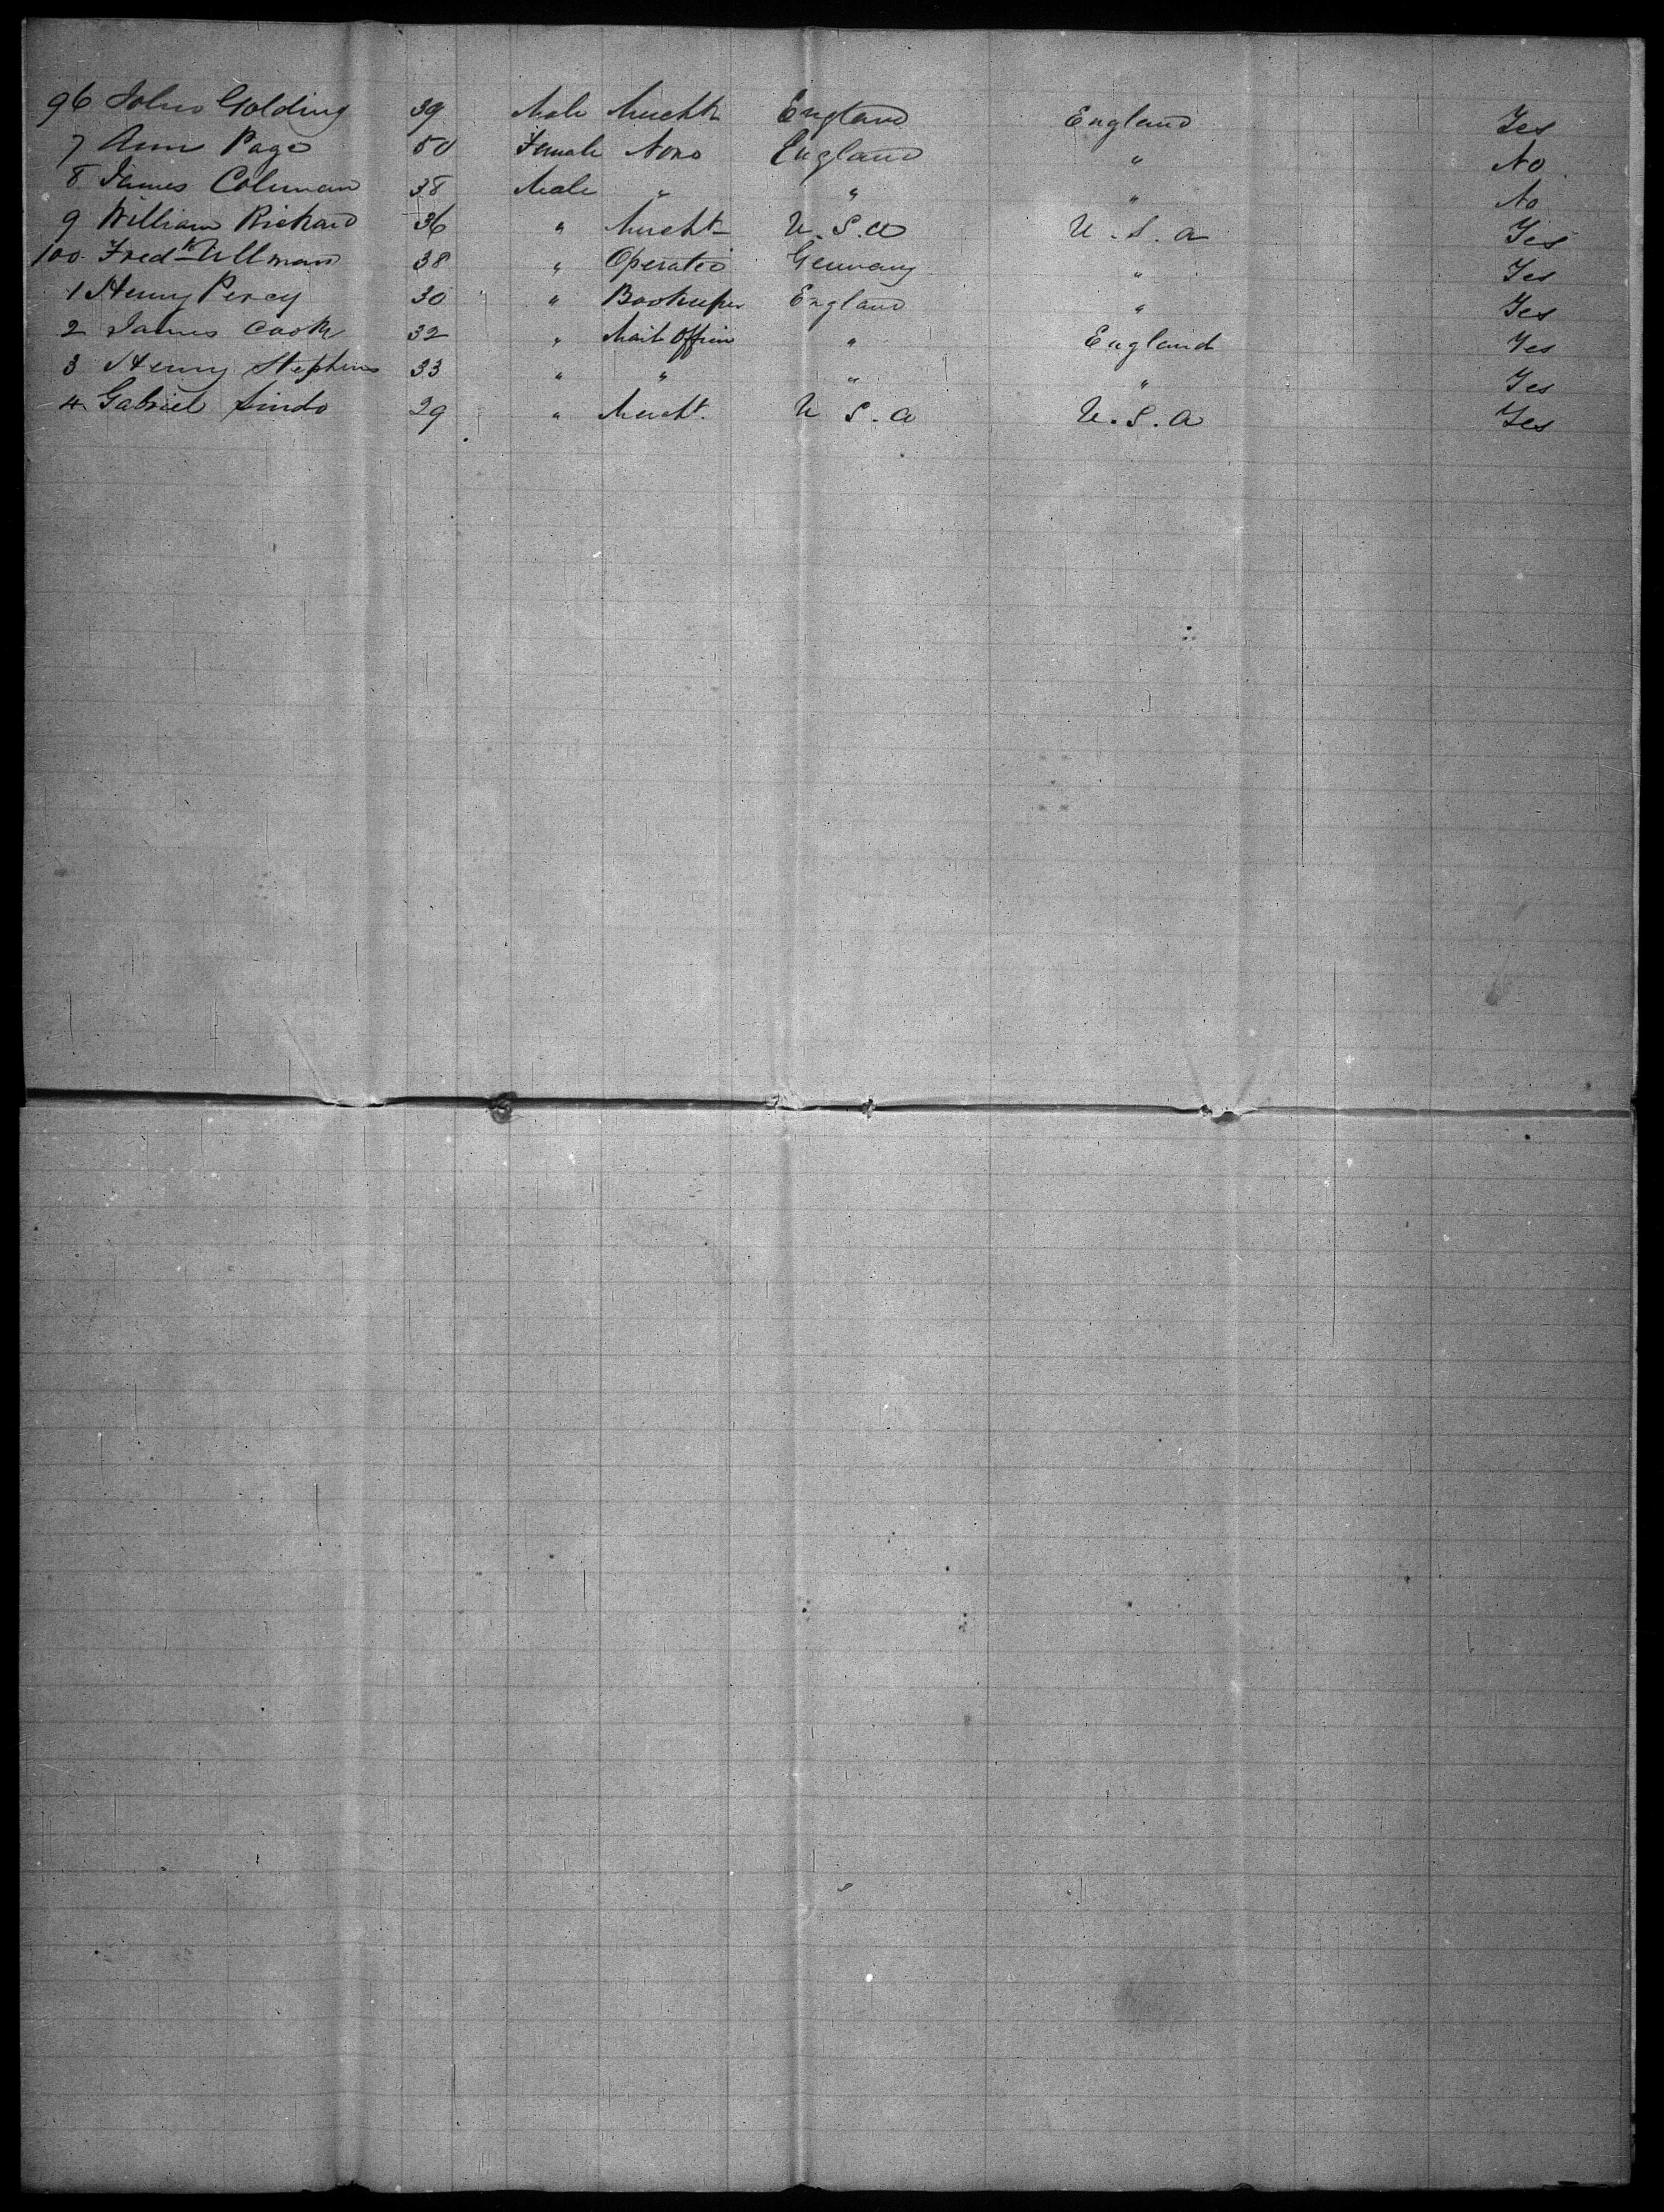 96 John Golding 39 Male Mercht England England Yes
7 Ann Page 50 Female None England " No
8 James Coleman 38 Male " " " No
9 William Rickard 36 " Mercht U.S.a U.S.a Yes
100. Fredk Ullman 38 " Operatic Germany " Yes
1 Henry Percy 30 " Bookeeper England " Yes
2 James Cook 32 " Mail Officer " England Yes
3 Henry Stephens 33 " " " " Yes
4 Gabriel Lindo 29 " Mercht. U S.a U.S.a Yes